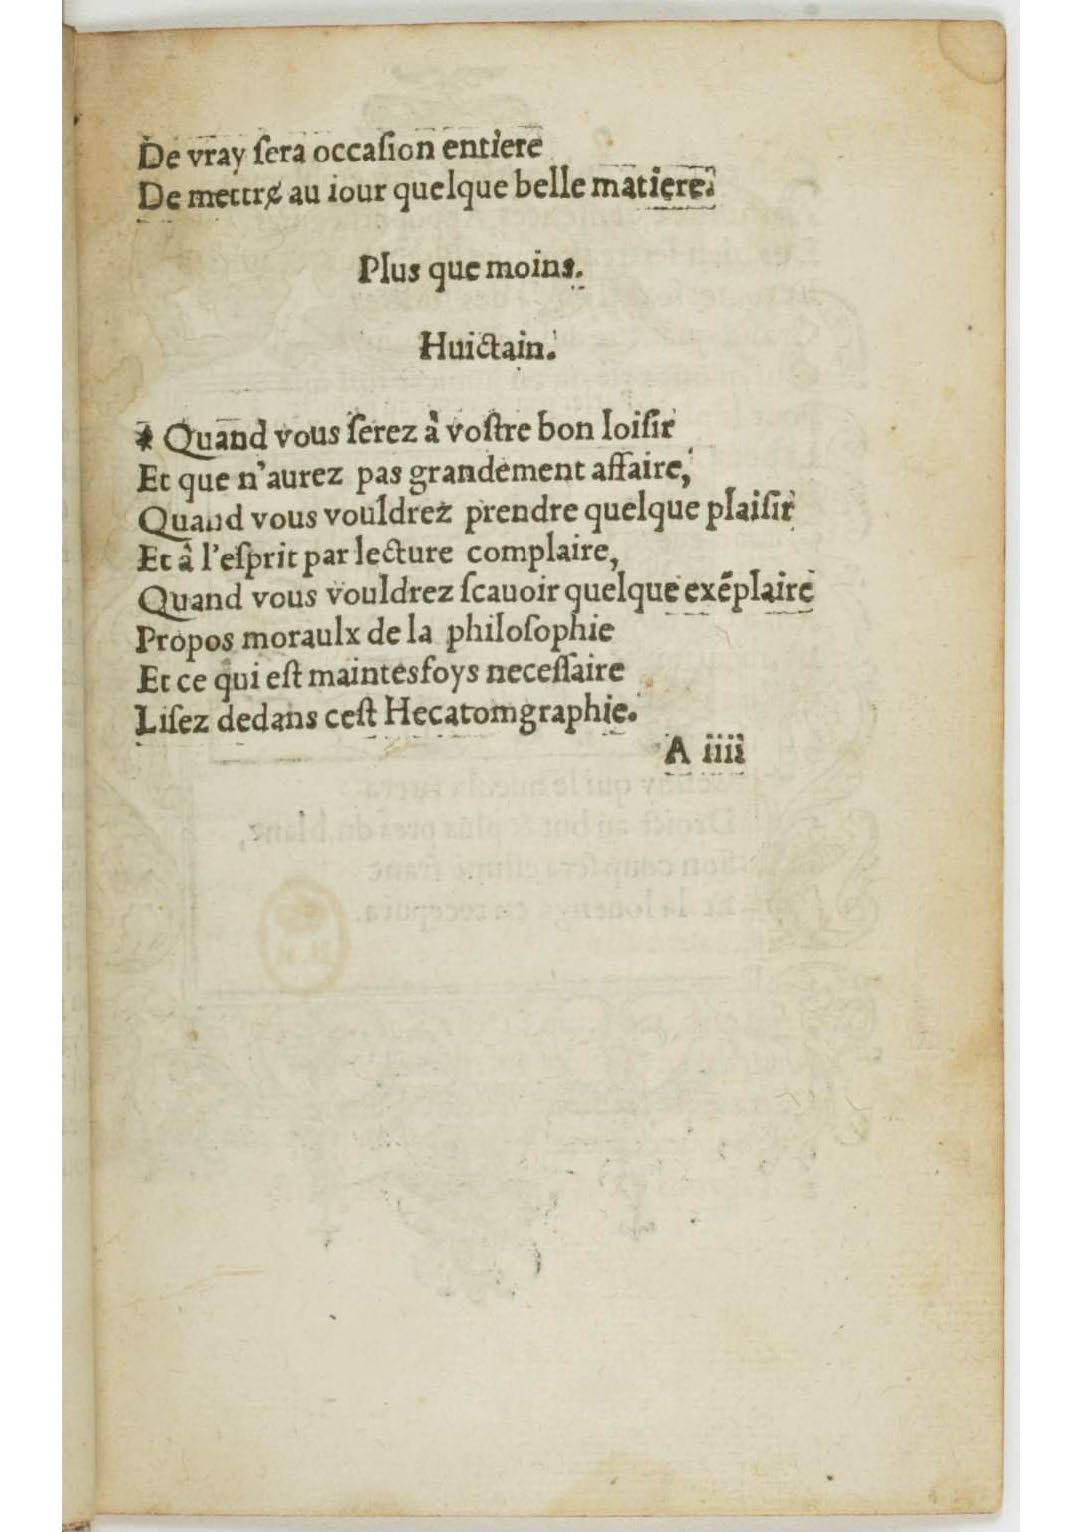 De vray ſera occaſion entiere
De mettrɇ au iour quelque belle matiere.
Plus que moins.
Huictain.
Quand vous ſerez à voſtre bon loiſir
Et que n'aurez pas grandement affaire,
Quand vous vouldrez prendre quelque plaiſir
Et à l'eſprit par lecture complaire,
Quand vous vouldrez ſcauoir quelque exẽplaire
Propos moraulx de la philoſophie
Et ce qui eſt maintesfoys neceſſaire
Liſez dedans ceſt Hecatomgraphie.
A iiii